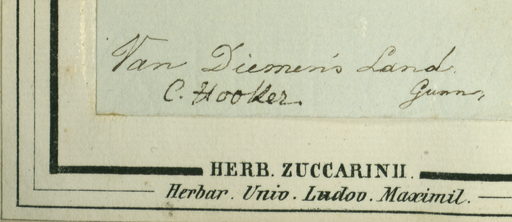 Van Diemen's Land.
C. Hooker. Gunn,
HERB. ZUCCARINII.
Herbar. Univ. Ludov. Maximil.